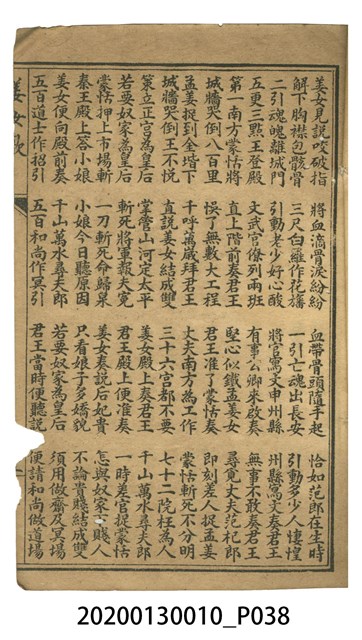 姜女見說咬破指 將血滴骨淚紛紛 血帶骨頭隨手起 恰如范郎在生時
解下胸襟包骸骨 三尺白羅作花旛 一引亡魂出長安 引動多少人悽惶
二引魂魄離城門 引動老少好心酸 將官寫文申州縣 州縣寫文奏君王
五更三點王登殿 文武官僚列兩班 有事公卿來啟奏 無事不敢奏君王
第一南方蒙恬將 直上階前奏君王 堅心似鐵孟姜女 尋覓丈夫范杞郎
城牆哭倒八百里 悞了無數大工程 君王准了蒙恬奏 即刻差人捉孟姜
孟姜捉到金堦下 千呼萬歲拜君王 丈夫南方為工作 蒙恬斬死不分明
城牆哭倒王不悅 直說姜女結成雙 三十六宮都不要 七十二院枉為人
策立正宮為皇后 掌管山河定太平 姜女殿上奏君王 千山萬水尋夫郎
若要奴家為皇后 斬死將軍報夫冤 君王殿上便准奏 一時差官捉蒙恬
蒙恬押上市場斬 一刀斬死命歸泉 姜女奏說后妃貴 怎與奴家賤人
秦王殿上答小娘 小娘今日聽原因 只看娘子多嬌貌 不論貴賤結成雙
姜女便向殿前奏 千山萬水尋夫郎 若要奴家為皇后 須用做齋及冥場
五百道士作招引 五百和尚作冥引 君王當時便聽說 便請和尚做道場
姜女歌
20200130010_P038